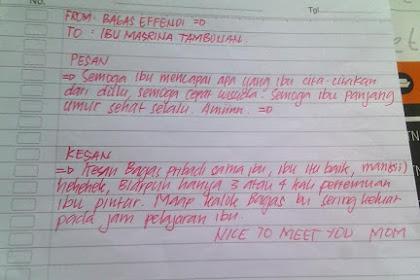 No.
Tgl.
FROM : BAGAS EFFENDI =D
TO : IBU MASRINA TAMBUNAN.
PESAN
=> Semoga ibu mencapai apa yang ibu cita-citakan
dari dullu, semoga cepat wisuda. Semoga ibu panjang
umur sehat selalu. Aminn. =D
KESAN
=> Kesan Bagas pribadi sama ibu, ibu itu baik, manis:)
hehehek, Biarpun hanya 3 atau 4 kali pertemuan
ibu pintar. Maap kalok bagas bu sering keluar
pada jam pelajaran ibu.
NICE TO MEET YOU MOM